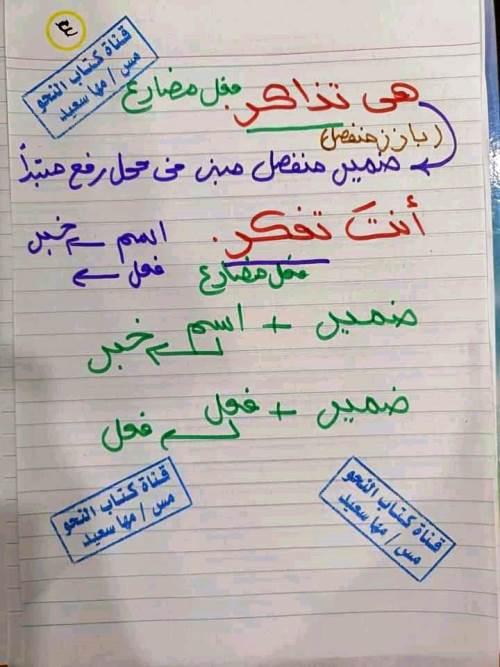 ٤
قناة كتاب النحو
مس / مها سعيد
هى تذاكر. فعل مضارع
(بارز منفصل)
ضمير منفصل مبنى فى محل رفع مبتدأ
أنتَ تفكر. اسم ← خبر
فعل مضارع فعل ←
ضمير + اسم ← خبر
ضمير + فعل ← فعل
قناة كتاب النحو
مس / مها سعيد
قناة كتاب النحو
مس / مها سعيد